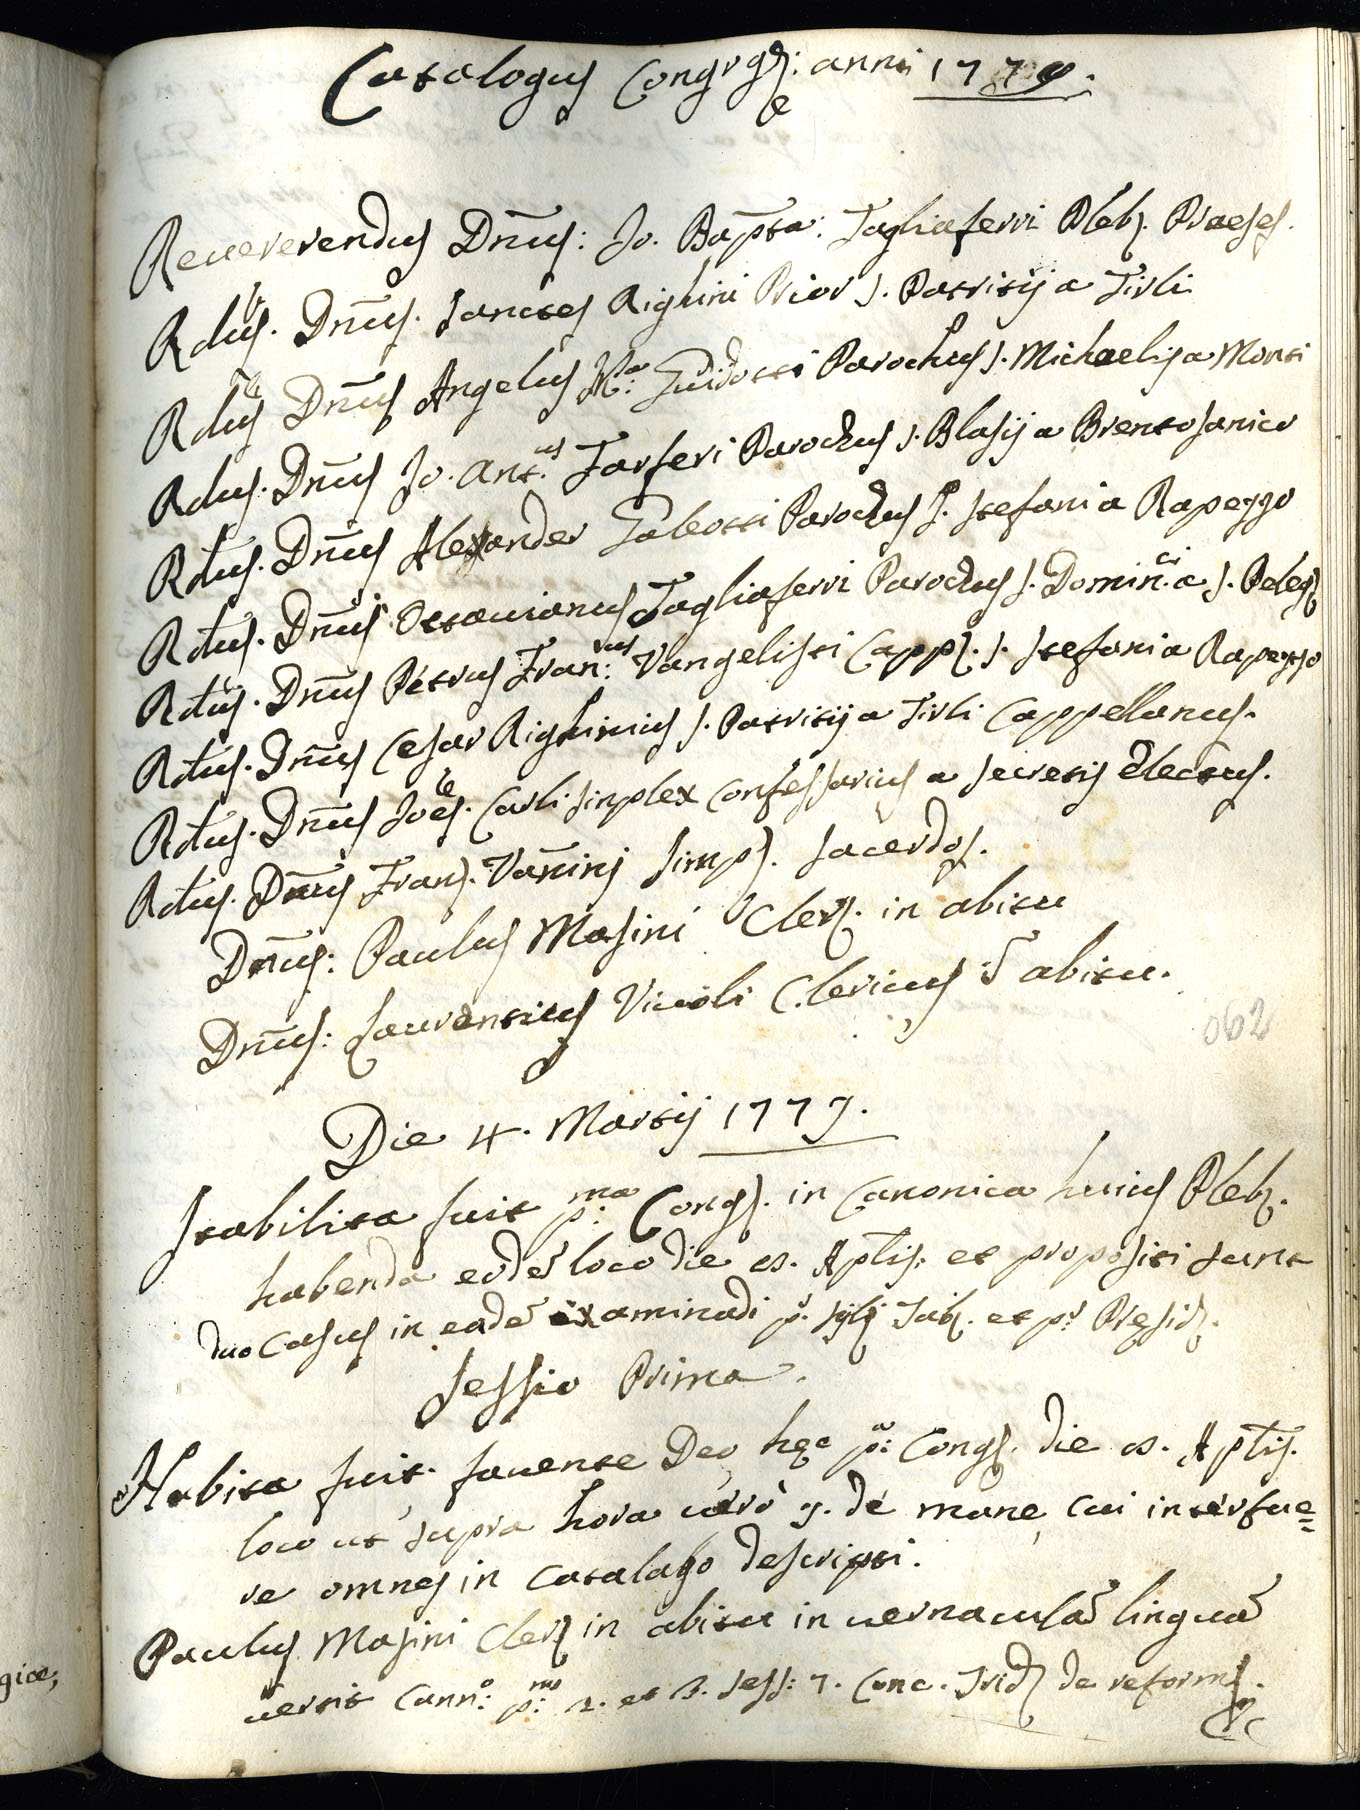 Catalogus Congrgẽ: anni 1779.
Reuererendus Dñus: Jo. Bapt̃a: Tagliaferri Pleb. Praeses.
Rdus. Dñus. Sanctes Righini Prior S. Patritij a Tirli
Rdus Dñus Angelus M:a Guidotti Parochus S. Michaelis a Monti
Rdus. Dñus Jo. Ant.us Tarferi Parochus S. Blasij a Brentosanico
Rdus. Dñus Alexander Galeotti Parochus S. Stefani a Rapezzo
Rdus. Dñus Octauianus Tagliaferri Parochus S. Domin.ci a S. Peleg.
Rdus. Dñus Petrus Fran:cus Vangelisti Capp. S. Stefani a Rapezzo
Rdus. Dñus Cesar Righinius S. Patritij a Tirli Cappellanus.
Rdus. Dñus Joẽs. Carli simplex Confessarius a secretis electus.
Rdus. Dñus Fran. Vanini simp. sacerdos.
Dñus: Paulus Masini Cler. in abitu
Dñus: Laurentius Viuoli Clericus ĩ abitu.
062
Die 4. Martij 1779.
Stabilita fuit p:ma Cong. in Canonica huius Pleb.
habenda eodẽ loco die 8. Aptis: et propositi sunt
duo Casus in eadẽ examinãdi p. Tab. et p. Presid.
Sessio Prima.
Habita fuit fauente Deo hęc p:a Cong. die 8. Aptis.
loco ut supra hora uero 9. de mane cui interfue=
re omnes in Catalago descripti.
Paulus Masini Cler. in abitu in uernaculã linguã
uertit Cann: p:us 2. et 3. Sess: 7. Conc. Trid. de reform.
gice,